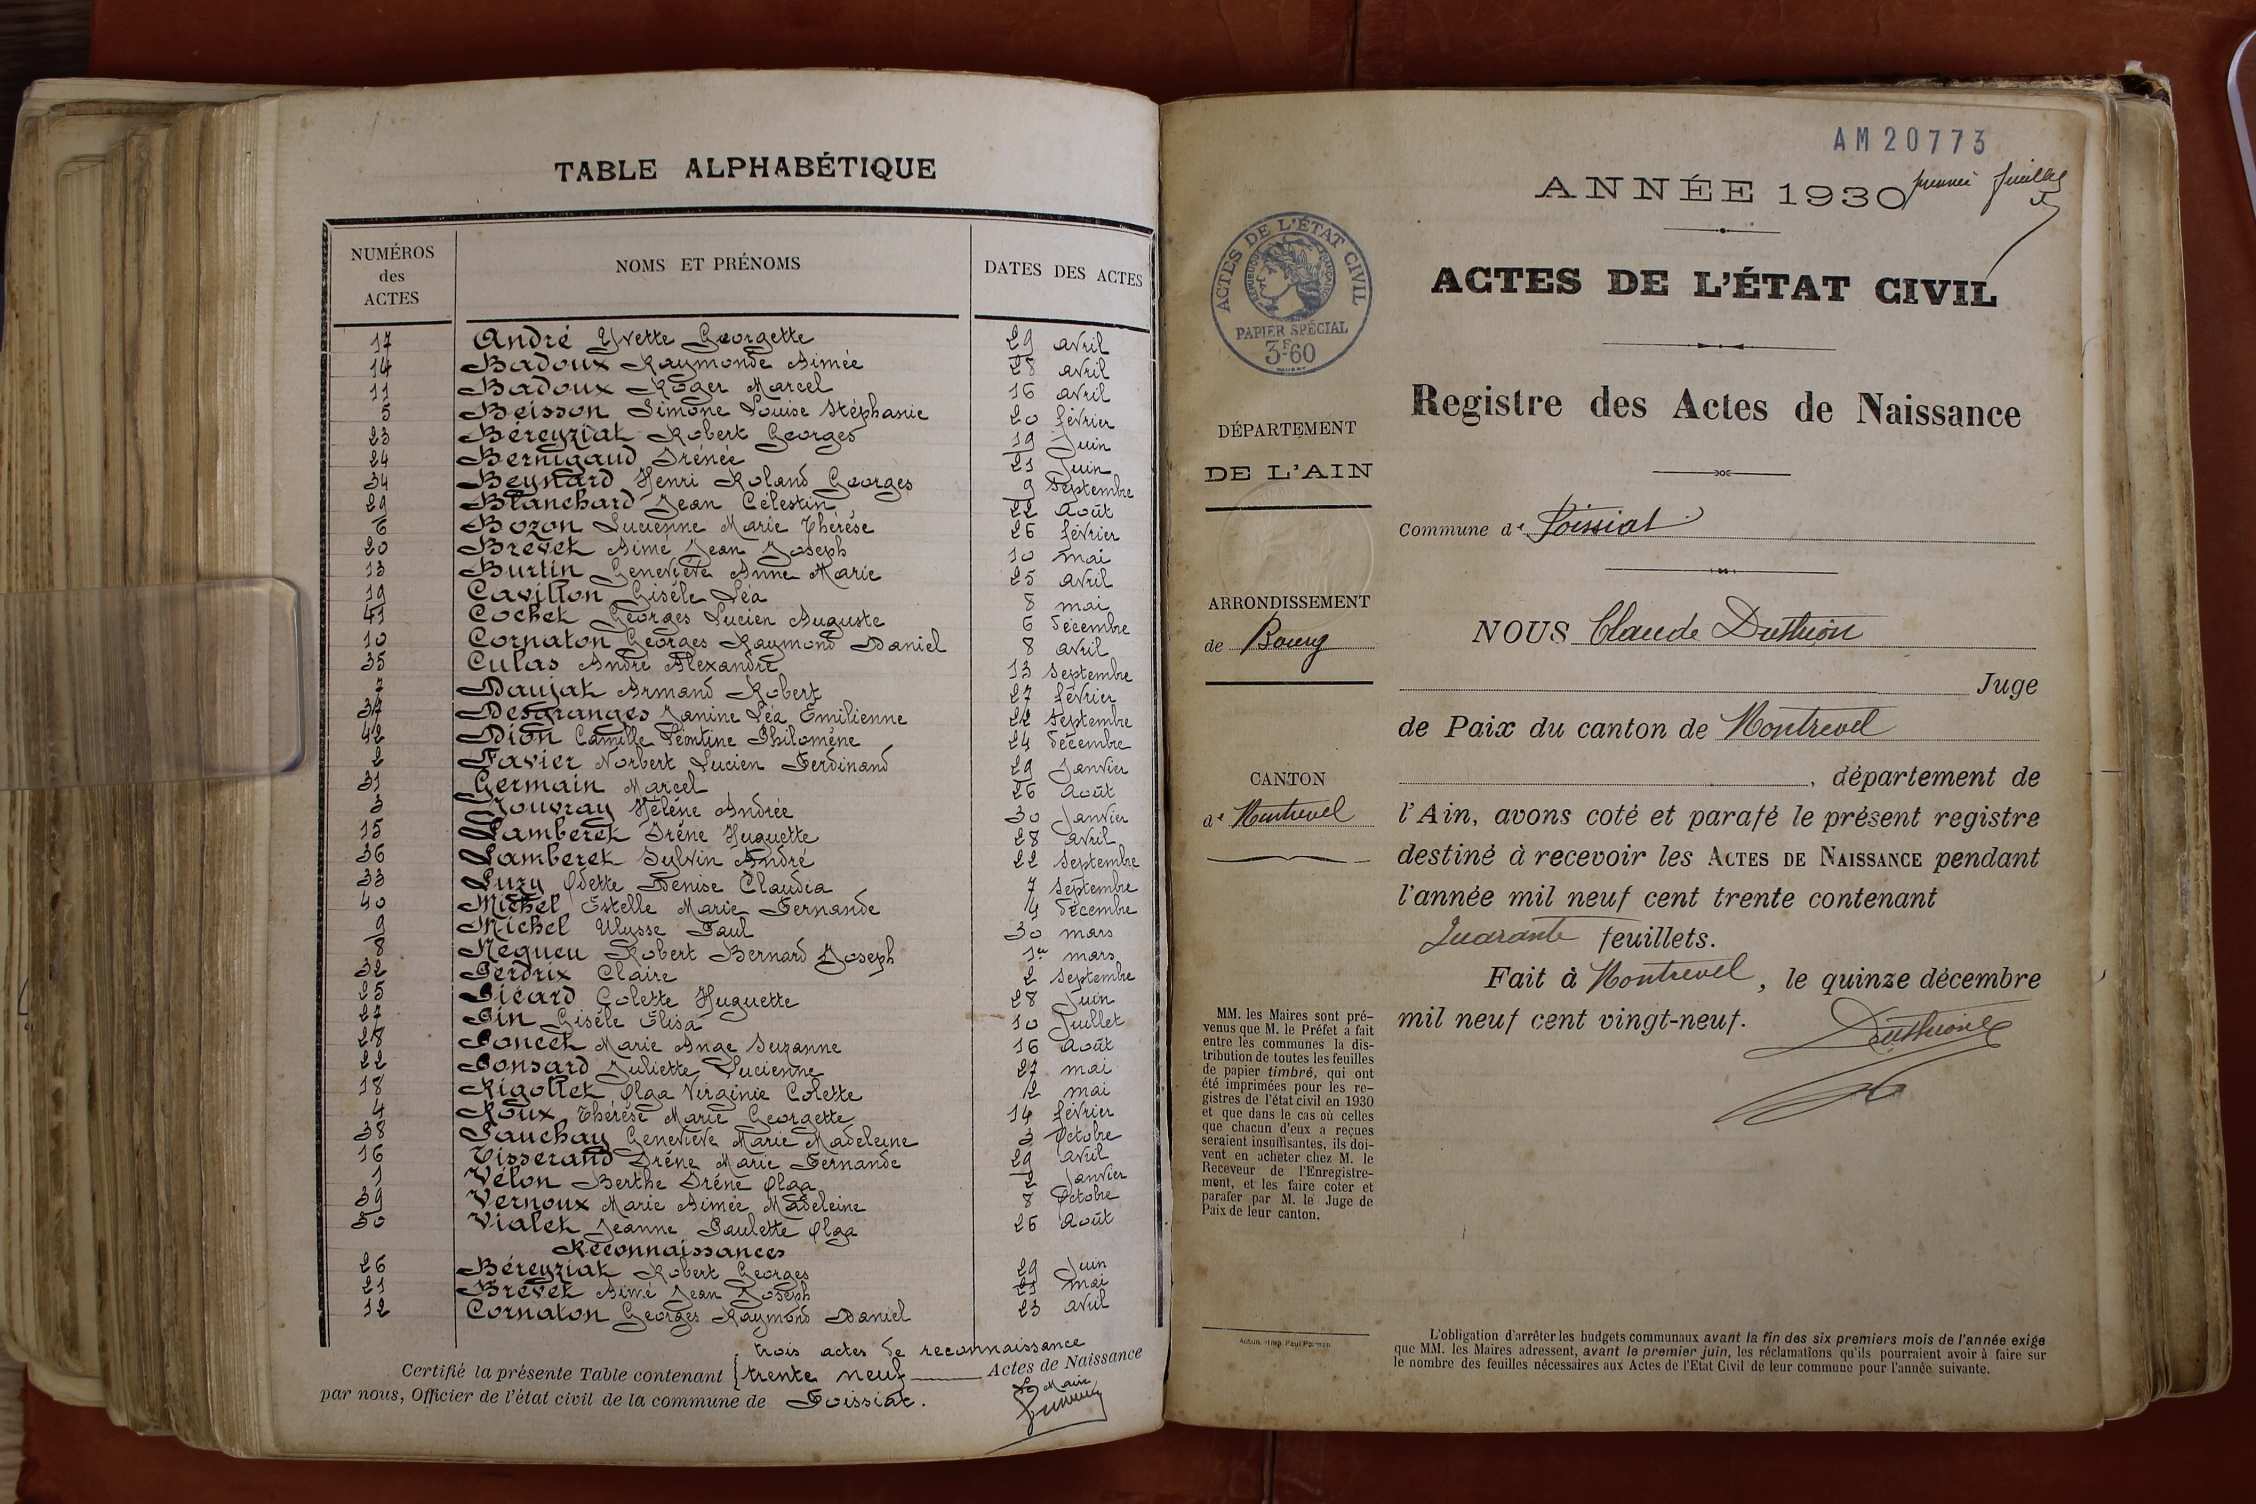 TABLE ALPHABÉTIQUE
NUMÉROS des ACTES NOMS ET PRÉNOMS DATES DES ACTES
17 André Yvette Georgette 29 avril
14 Badoux Raymonde Aimée 28 avril
11 Badoux Roger Marcel 16 avril
5 Beisson Simone Louise Stéphanie 20 février
23 Béreyziat Robert Georges 19 Juin
24 Bernigaud Irénée 21 Juin
34 Beynard Henri Roland Georges 9 Septembre
29 Blanchard Jean Célestin 22 Août
6 Bozon Lucienne Marie Thérèse 26 février
20 Brevet Aimé Jean Joseph 10 mai
13 Burtin Geneviève Anne Marie 25 avril
19 Cavillon Gisèle Léa 8 mai
41 Cochet Georges Lucien Auguste 6 décembre
10 Cornaton Georges Raymond Daniel 8 avril
35 Culas André Alexandre 13 Septembre
7 Daujat Armand Robert 27 février
37 Desgranges Janine Léa Emilienne 22 Septembre
42 Dion Camille Léontine Philomène 24 décembre
2 Favier Norbert Lucien Ferdinand 29 Janvier
31 Germain Marcel 26 Août
3 Jouvray Hélène Andrée 30 Janvier
15 Lamberet Irène Huguette 28 avril
36 Lamberet Sylvin André 22 Septembre
33 Luzy Odette Denise Claudia 7 Septembre
40 Michel Estelle Marie Fernande 4 décembre
9 Michel Ulysse Paul 30 mars
8 Nequeu Robert Bernard Joseph 1er mars
32 Perdrix Claire 2 Septembre
25 Picard Colette Huguette 28 Juin
27 Pin Gisèle Elisa 10 Juillet
28 Poncet Marie Ange Suzanne 16 Août
22 Ponsard Juliette Lucienne 27 mai
18 Rigollet Olga Virginie Colette 2 mai
4 Roux Thérèse Marie Georgette 14 février
38 Sauchay Geneviève Marie Madeleine 3 Octobre
16 Tisserand Irène Marie Fernande 29 avril
1 Vélon Berthe Irène Olga 2 Janvier
39 Vernoux Marie Aimée Madeleine 8 Octobre
30 Vialet Jeanne Paulette Olga 26 Août
Reconnaissances
26 Béreyziat Robert Georges 29 Juin
21 Brevet Aimé Jean Joseph 21 mai
12 Cornaton Georges Raymond Daniel 23 avril
trois actes de reconnaissance
Certifié la présente Table contenant trente neuf Actes de Naissance
par nous, Officier de l'état civil de la commune de Foissiat.
Le Maire
AM 20773
ANNÉE 1930
premier feuillet
ACTES DE L'ÉTAT CIVIL
RÉPUBLIQUE FRANÇAISE
PAPIER SPÉCIAL
3F60
ACTES DE L'ÉTAT CIVIL
Registre des Actes de Naissance
DÉPARTEMENT
DE L'AIN
Commune de Foissiat
ARRONDISSEMENT
de Bourg
NOUS Claude Duthion
Juge
de Paix du canton de Montrevel
, département de
CANTON
de Montrevel
l'Ain, avons coté et parafé le présent registre
destiné à recevoir les ACTES DE NAISSANCE pendant
l'année mil neuf cent trente contenant
Quarante feuillets.
Fait à Montrevel, le quinze décembre
mil neuf cent vingt-neuf.
Duthion
MM. les Maires sont pré-
venus que M. le Préfet a fait
entre les communes la dis-
tribution de toutes les feuilles
de papier timbré, qui ont
été imprimées pour les re-
gistres de l'état civil en 1930
et que dans le cas où celles
que chacun d'eux a reçues
seraient insuffisantes, ils doi-
vent en acheter chez M. le
Receveur de l'Enregistre-
ment, et les faire coter et
parafer par M. le Juge de
Paix de leur canton.
L'obligation d'arrêter les budgets communaux avant la fin des six premiers mois de l'année exige
que MM. les Maires adressent, avant le premier juin, les réclamations qu'ils pourraient avoir à faire sur
le nombre des feuilles nécessaires aux Actes de l'Etat Civil de leur commune pour l'année suivante.